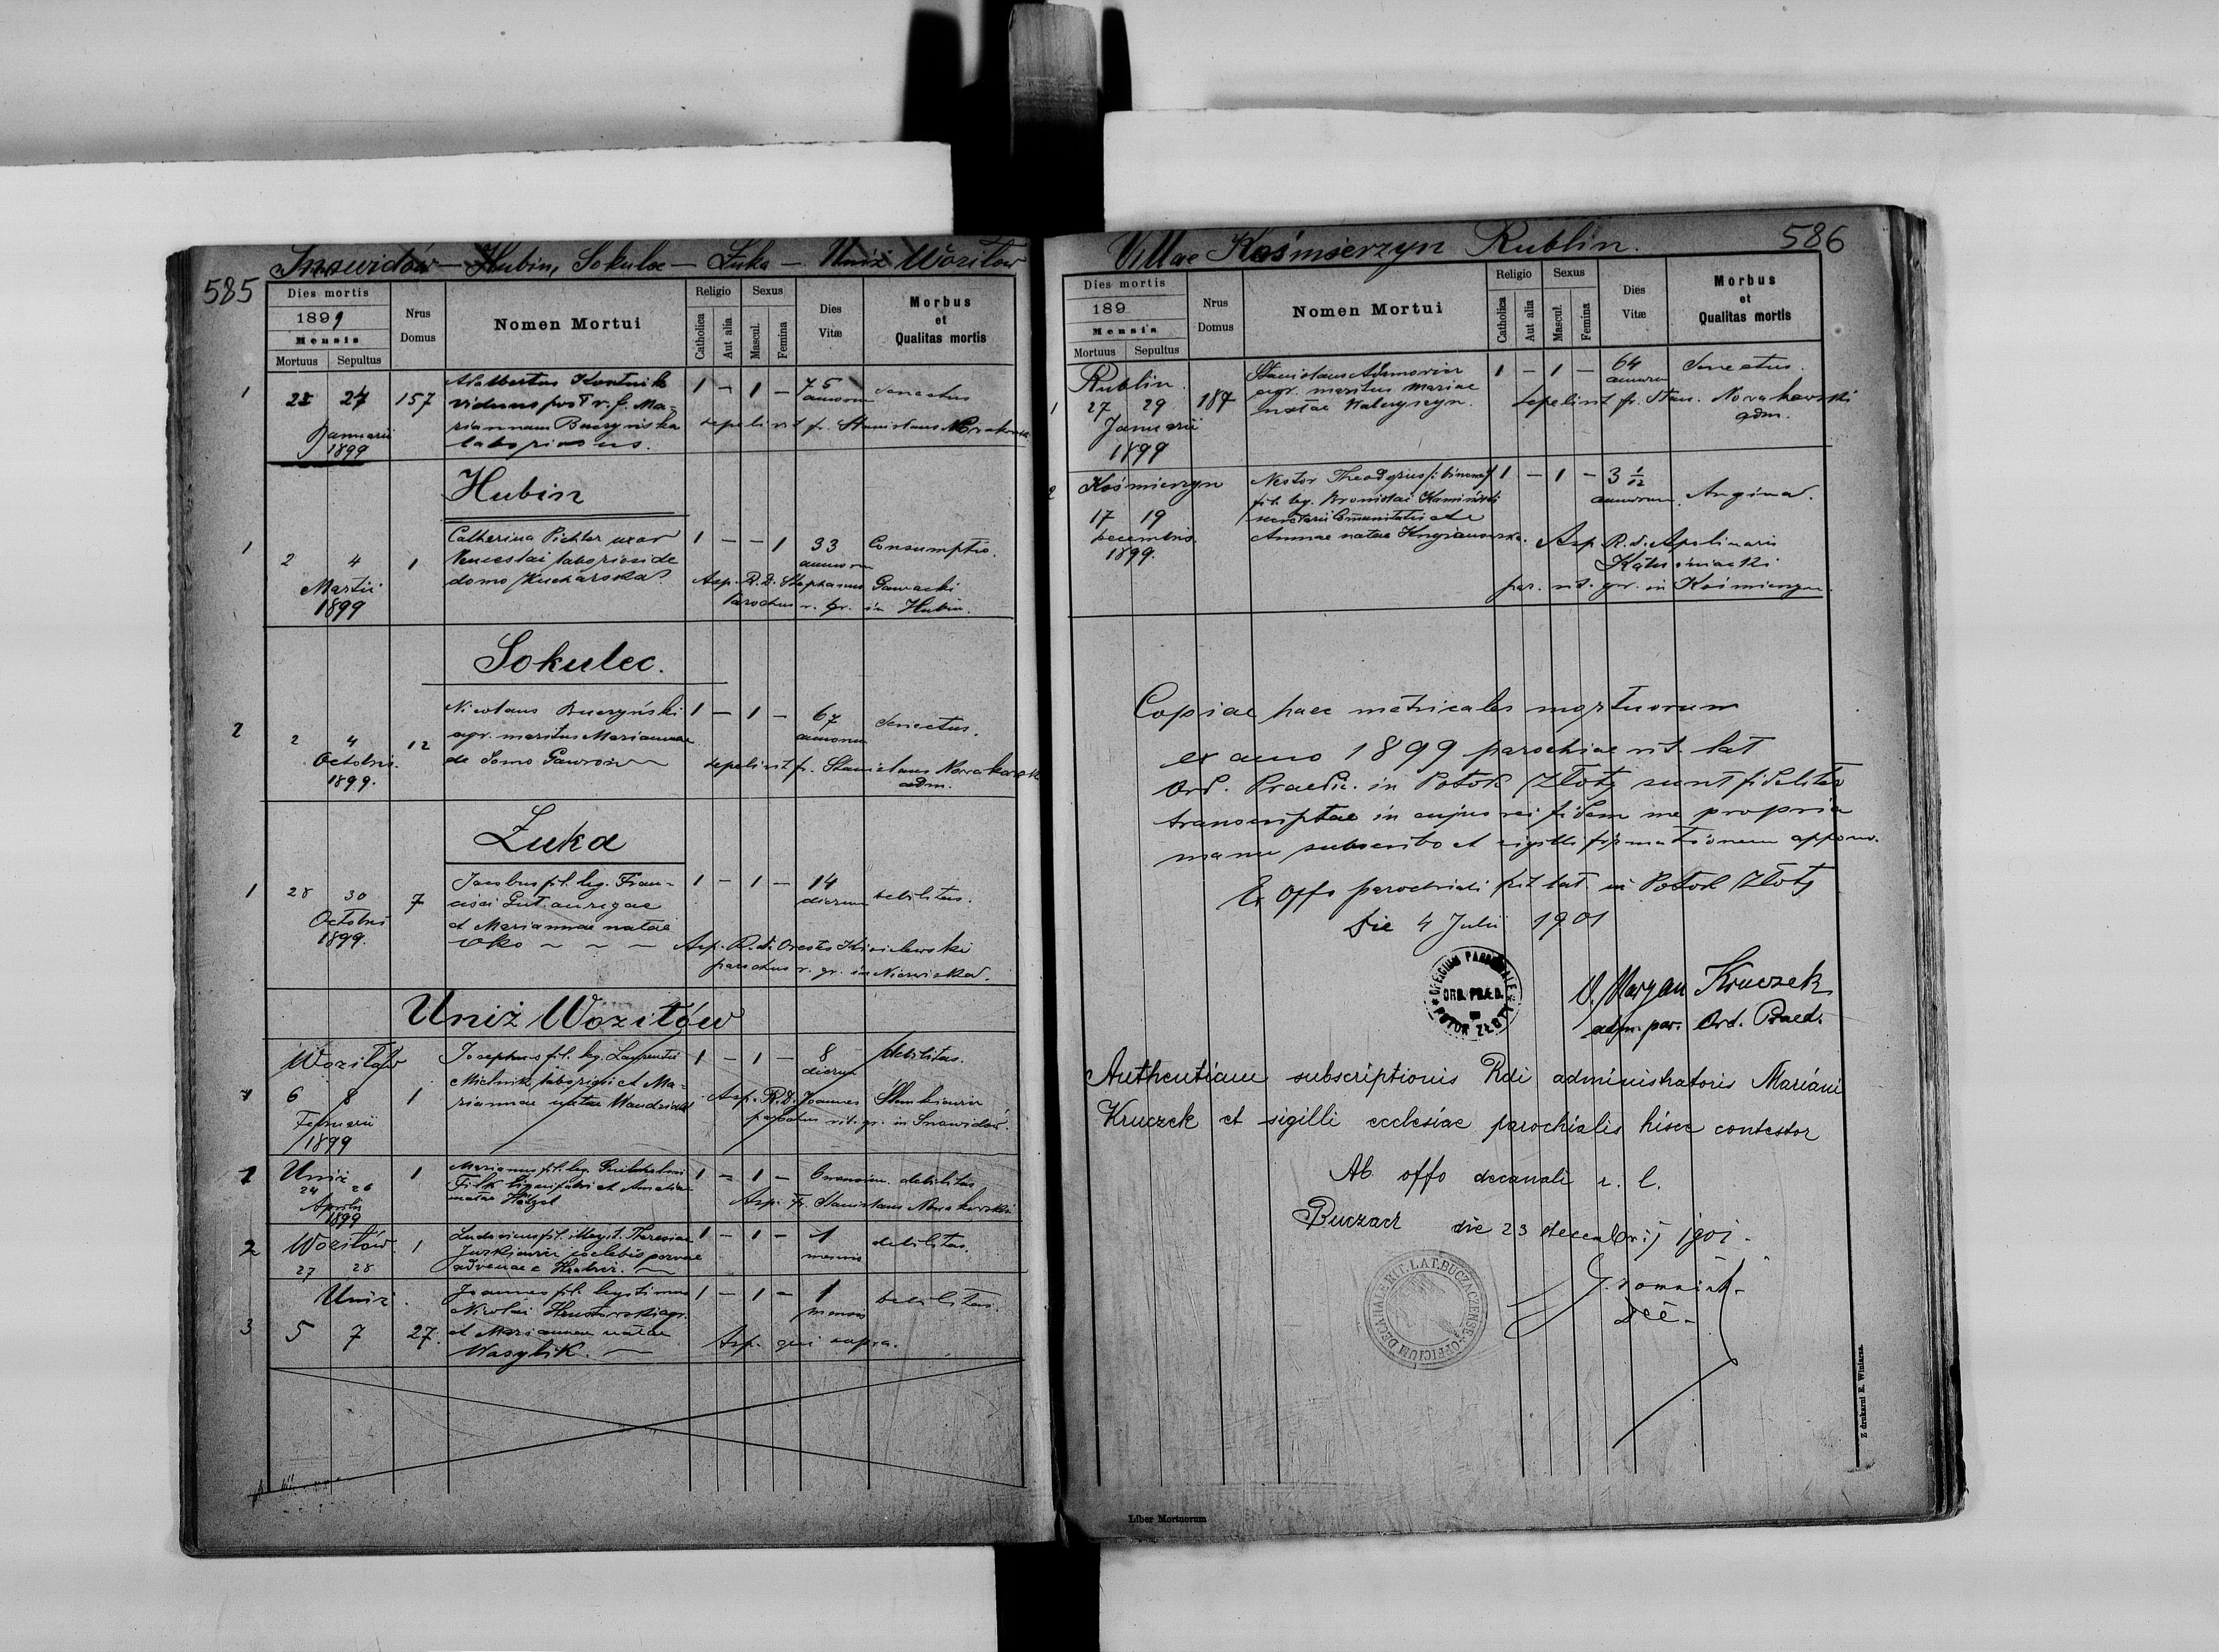 585
Snowidów – Hubin, Sokulec – Łuka – Uniż Woziłów
Dies mortis
1899
Mensis
Mortuus Sepultus
Nrus Domus
Nomen Mortui
Religio
Catholica Aut alia
Sexus
Mascul. Femina
Dies Vitæ
Morbus et Qualitas mortis
1 27 157 Adalbertus 1 – 1 – 75 Senectus
viduus post r. f. Ma-
riannam Buczyńska annorum sepelivit fr. Stanislaus Nowakowski
laboriosus.
Januarii
1899
Hubin
1 2 4 1 Catherina Pichler uxor 1 – – 1 33 Consumptio.
Venceslai laboriosi de annorum
domo Kucharska Asp. R. D. Stephanus Gawacki
Martii
1899 Parochus r. gr. in Hubin.
Sokulec.
2 2 4 12 Nicolaus Buczyński 1 – 1 – 67 Senectus.
agr. maritus Mariannae annorum
de domo Gawron sepelivit fr. Stanislaus Nowakowski
Octobris adm.
1899.
Łuka
1 28 30 7 Jacobus fil. leg. Fran- 1 – 1 – 14 debilitas.
cisci aurigae dierum
et Mariannae natae
Octobris
1899. Asp. R. d. Orestes
parochus r. gr. in Niezwiska.
Uniż Woziłów
Woziłów Josephus fil. leg. Laurentii 1 – 1 – 8 debilitas.
Mielnik laboriosi et Ma- dierum
1 6 8 1 riannae natae Asp. R. D. Joannes
Februarii parochus rit. gr. in Snowidów.
1899
1 Uniż 1 Marianus fil. leg. 1 – 1 – 6 mensium. debilitas
24 26 et Amaliae
Aprilis natae Asp. Fr. Stanislaus Nowakowski
1899
2 Woziłów 1 Ludovicus fil. illegit. Theresiae 1 – 1 – 1 debilitas.
27 28 mensis
advenae e
Uniż Joannes fil. legitimus 1 – 1 – 1 debilitas.
Nicolai agr. mensis
3 5 7 27. et Mariannae natae Asp. qui supra.
Wasylik.
586
Villae Kośmierzyn Rublin.
Dies mortis
189
Mensis
Mortuus Sepultus
Nrus Domus
Nomen Mortui
Religio
Catholica Aut alia
Sexus
Mascul. Femina
Dies Vitæ
Morbus et Qualitas mortis
Rublin. Stanislaus 1 – 1 – 64 Senectus.
1 27 29 187 agr. maritus Mariae annorum
natae sepelivit fr. Stan. Nowakowski
Januarii adm.
1899
2 Kośmierzyn Nestor Theodosius 1 – 1 – 3 1/12 Angina.
fil. leg. Bronislai Kamiński annorum
17 19 secretarii Communitatis et
Decembris Annae natae Asp. R. d. Apolinaris
1899.
par. rit. gr. in Kośmierzyn.
Copiae haec metricales mortuorum
ex anno 1899 parochiae rit. lat
Ord. Praedic. in Potok Złoty sunt fideliter
transcriptae in cujus rei fidem me propria
manu subscribo et sigilli firmationem appono.
Ex Offo parochiali rit lat. in Potok Złoty
die 4 Julii 1901
OFFICIUM PAROCHIALE
ORD. PRÆD.
POTOK ZŁOTY
Maryan Kruczek
adm. par. Ord. Praed.
Authentiam subscriptionis Rdi administratoris Mariani
Kruczek et sigilli ecclesiae parochialis hisce contestor
Ab offo decanali r. l.
Buczacz die 23 decembris 1901.
Dec.
OFFICIUM DECANALE RIT. LAT. BUCZACZENSE
Liber Mortuorum
Z drukarni E. Winiarza.